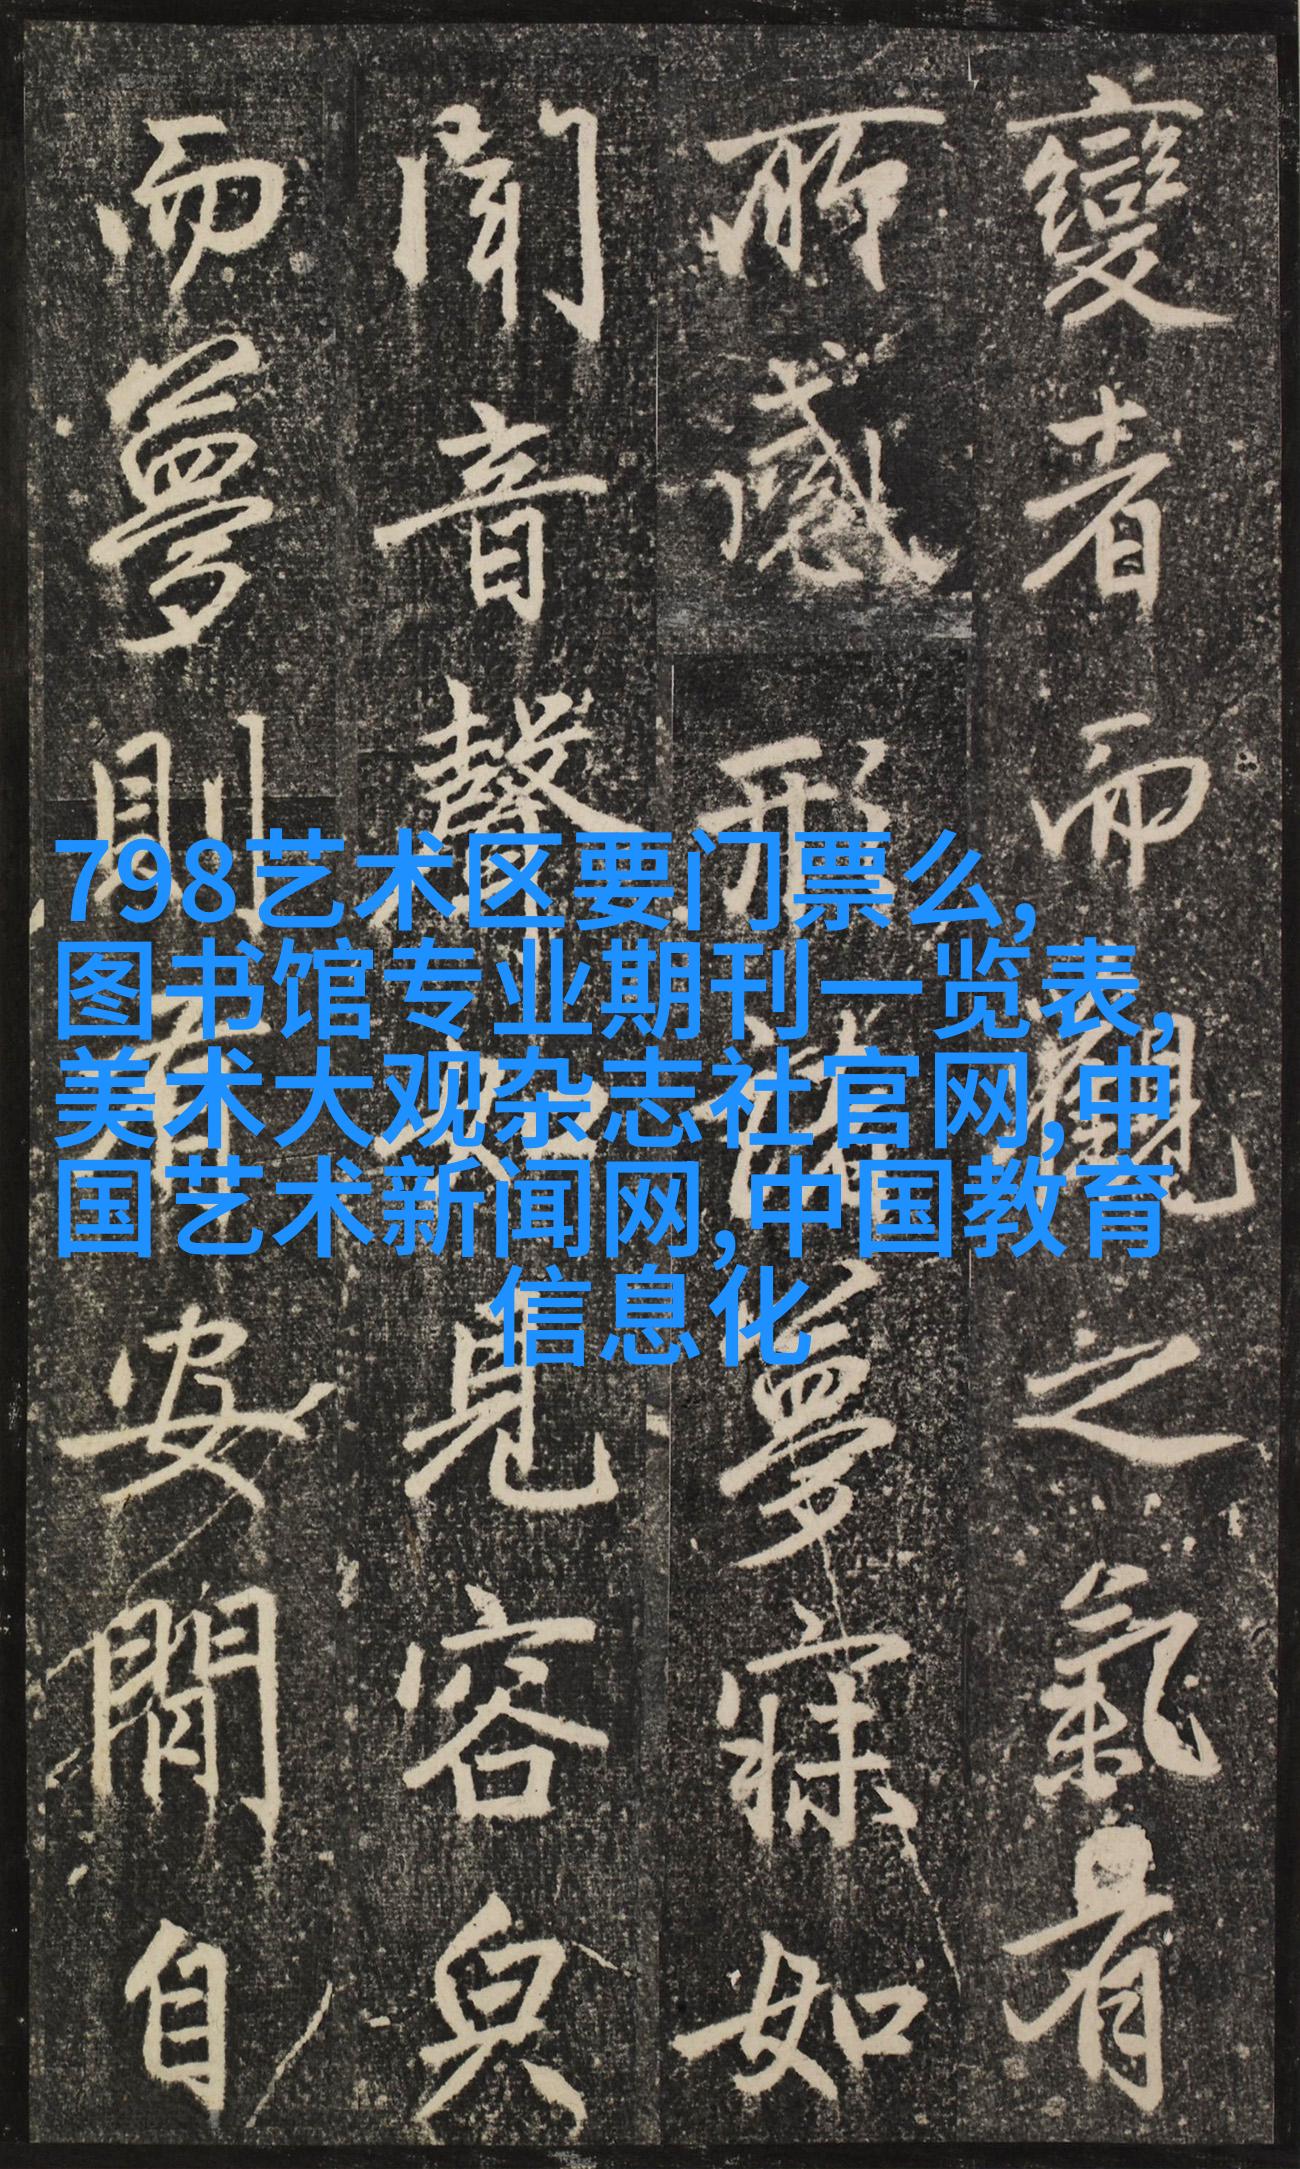 變者而觀之氣有
所感形諸夢寐如
聞音聲如見容皃
而夢則有安閒自
798艺术区要门票么,
图书馆专业期刊一览表,
美术大观杂志社官网,中
国艺术新闻网,中国教育
信息化